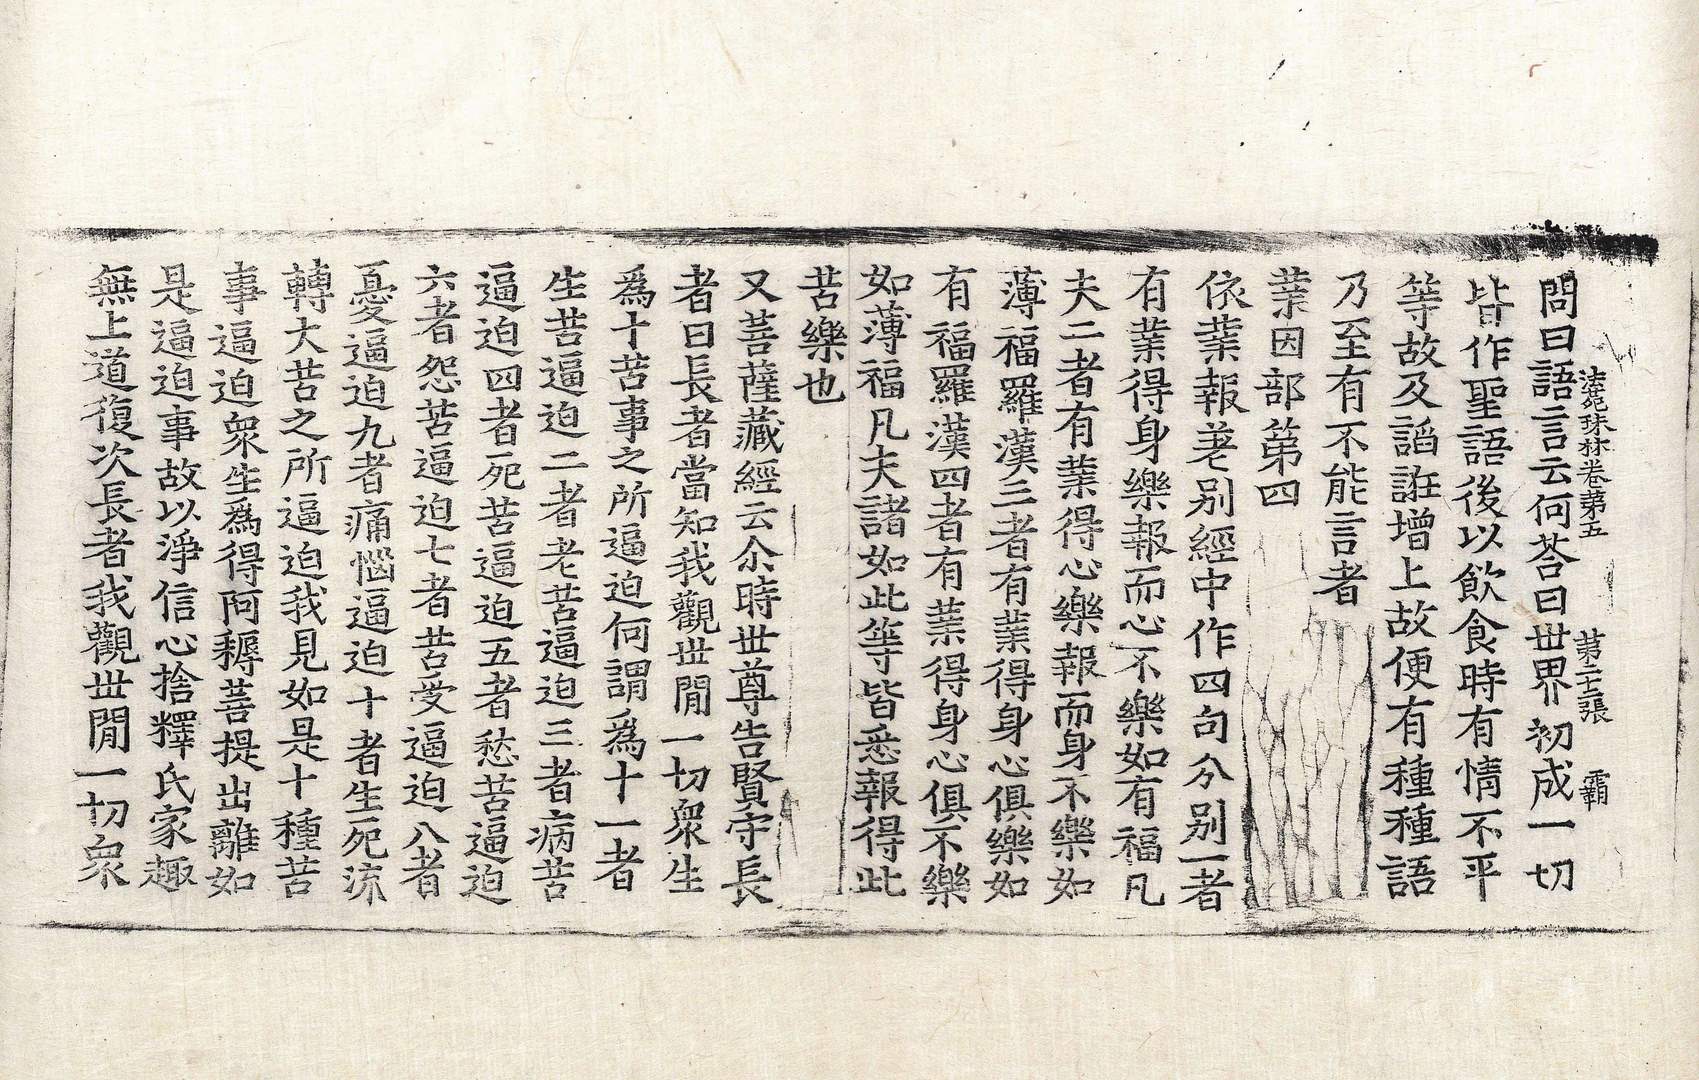 問曰語言云何荅曰世界初成一切
法苑珠林卷第五 第二十三張 霸
皆作聖語後以飲食時有情不平
等故及諂誑增上故便有種種語
乃至有不能言者
業因部第四
依業報差别經中作四句分别一者
有業得身樂報而心不樂如有福凡
夫二者有業得心樂報而身不樂如
薄福羅漢三者有業得身心俱樂如
有福羅漢四者有業得身心俱不樂
如薄福凡夫諸如此等皆悉報得此
苦樂也
又菩薩藏經云尒時世尊告賢守長
者曰長者當知我觀世閒一切衆生
爲十苦事之所逼迫何謂爲十一者
生苦逼迫二者老苦逼迫三者病苦
逼迫四者死苦逼迫五者愁苦逼迫
六者怨苦逼迫七者苦受逼迫八者
憂逼迫九者痛惱逼迫十者生死流
轉大苦之所逼迫我見如是十種苦
事逼迫衆生爲得阿耨菩提出離如
是逼迫事故以淨信心捨釋氏家趣
無上道復次長者我觀世閒一切衆